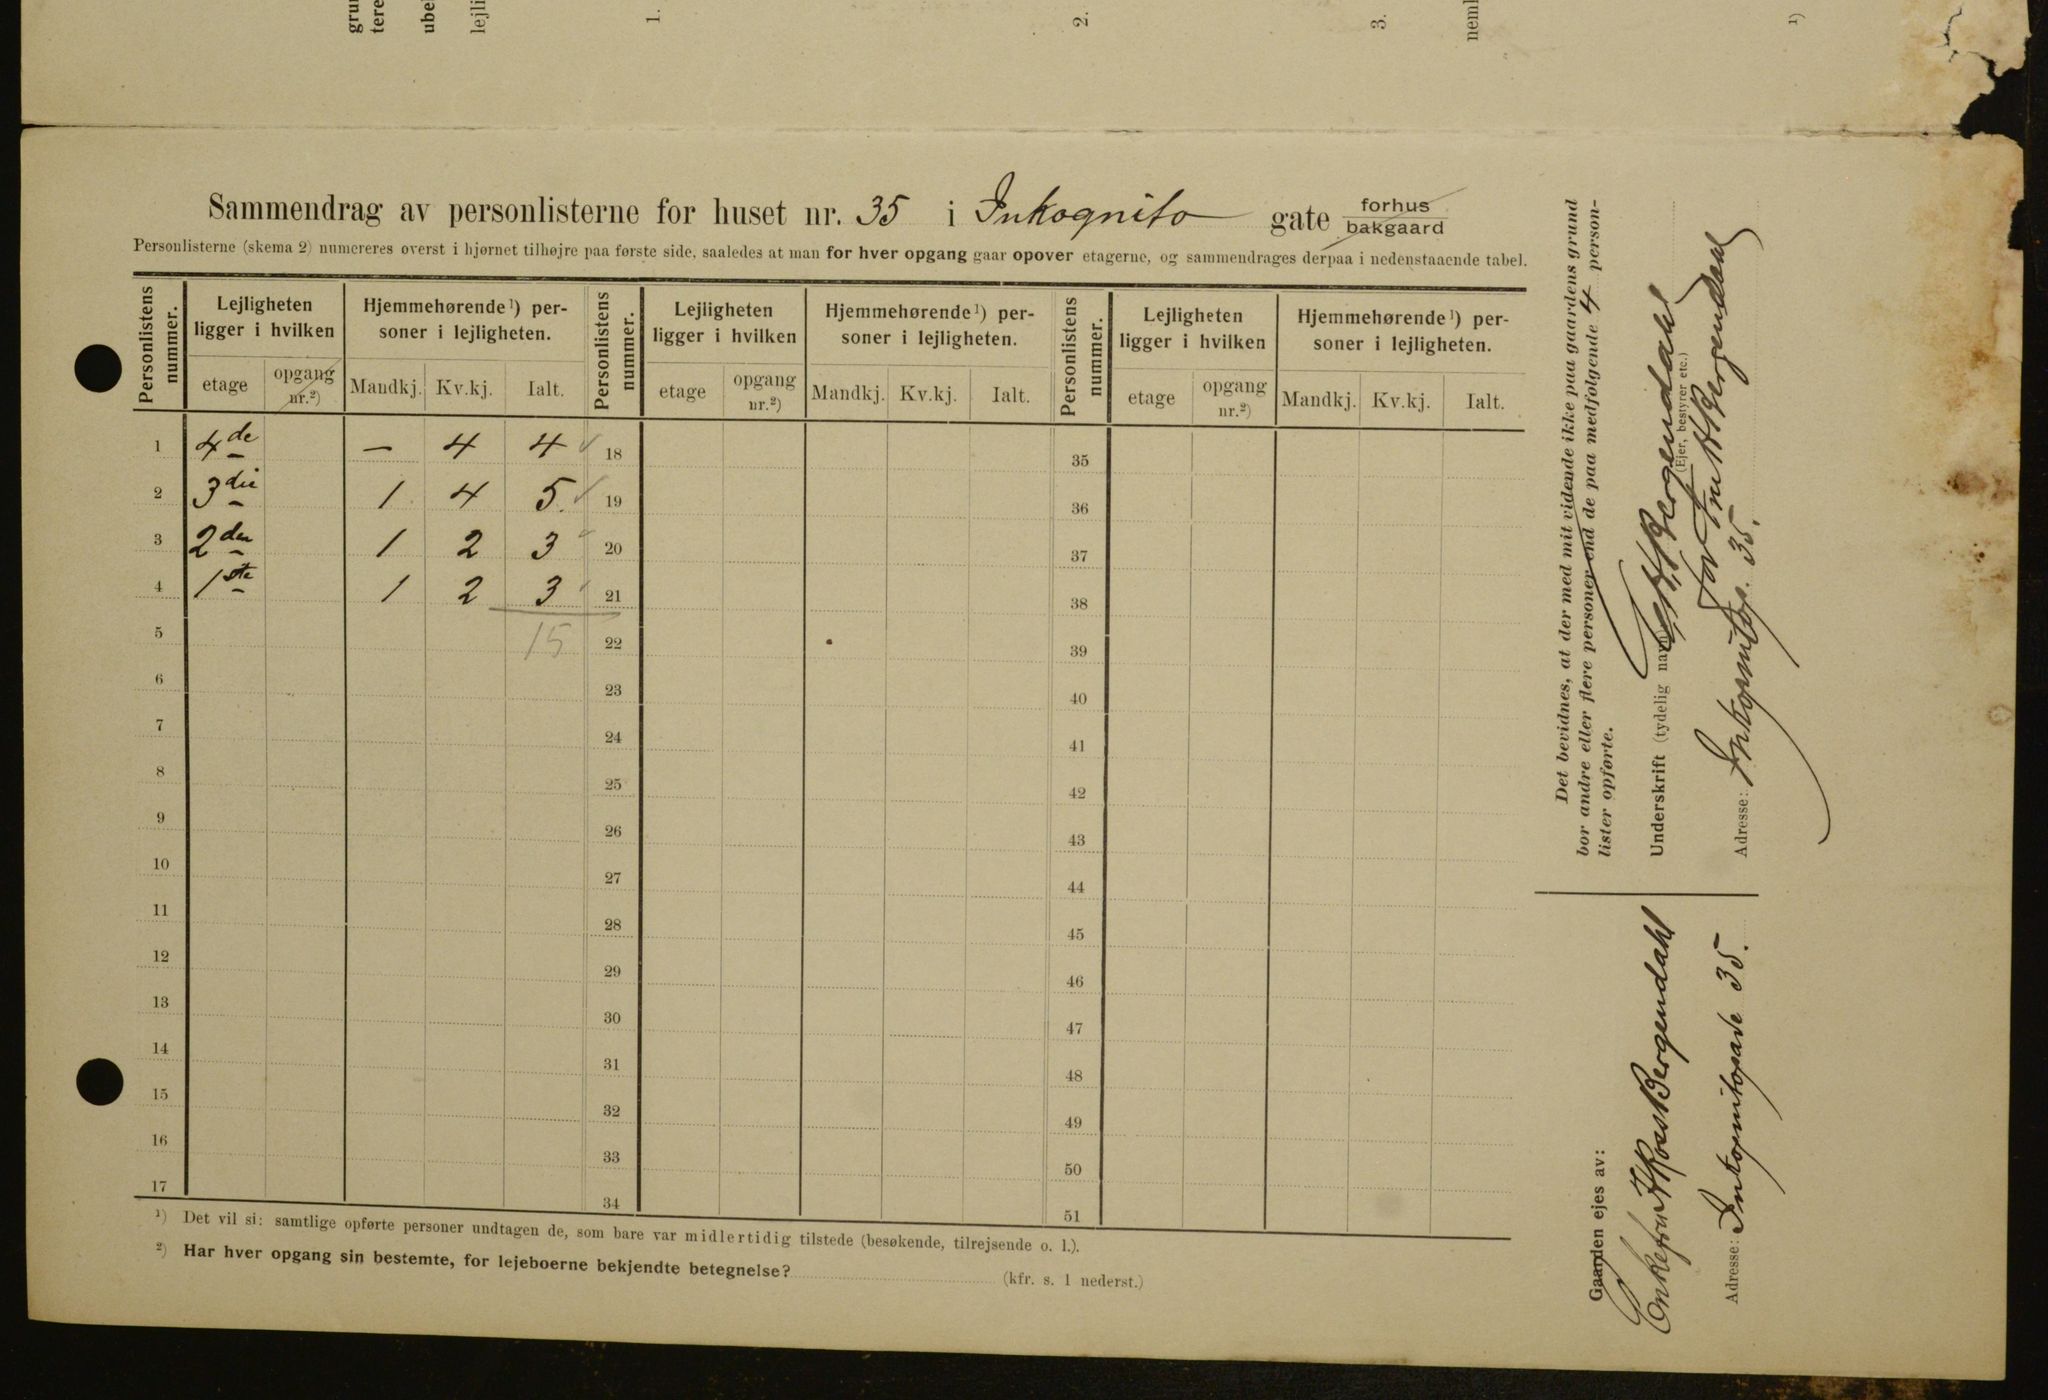 Sammendrag av personlisterne for huset nr. 35 i Inkognito gate forhus bakgaard
Personlisterne (skema 2) numereres øverst i hjørnet tilhøjre paa første side, saaledes at man for hver opgang gaar opover etagerne, og sammendrages derpaa i nedenstaaende tabel.
Personlistens nummer. Lejligheten ligger i hvilken Hjemmehørende ¹) personer i lejligheten. Personlistens nummer. Lejligheten ligger i hvilken Hjemmehørende ¹) personer i lejligheten. Personlistens nummer. Lejligheten ligger i hvilken Hjemmehørende ¹) personer i lejligheten.
etage opgang nr.²) Mandkj. Kv.kj. Ialt. etage opgang nr.²) Mandkj. Kv.kj. Ialt. etage opgang nr.²) Mandkj. Kv.kj. Ialt.
1 4de — 4 4 18 35
2 3die 1 4 5. 19 36
3 2den 1 2 3 20 37
4 1ste 1 2 3 21 38
5 15 22 39
6 23 40
7 24 41
8 25 42
9 26 43
10 27 44
11 28 45
12 29 46
13 30 47
14 31 48
15 32 49
16 33 50
17 34 51
¹) Det vil si: samtlige opførte personer undtagen de, som bare var midlertidig tilstede (besøkende, tilrejsende o. l.).
²) Har hver opgang sin bestemte, for lejeboerne bekjendte betegnelse? (kfr. s. 1 nederst.)
Det bevidnes, at der med mit vidende ikke paa gaardens grund
bor andre eller flere personer end de paa medfølgende 4 person-
lister opførte.
Underskrift (tydelig navn) Bergendahl
(Ejer, bestyrer etc.)
for Fru Bergendahl
Adresse: Inkognitog. 35.
Gaarden ejes av:
Enkefru Bergendahl
Adresse: Inkognitogade 35.
1.
2.
3.
¹)